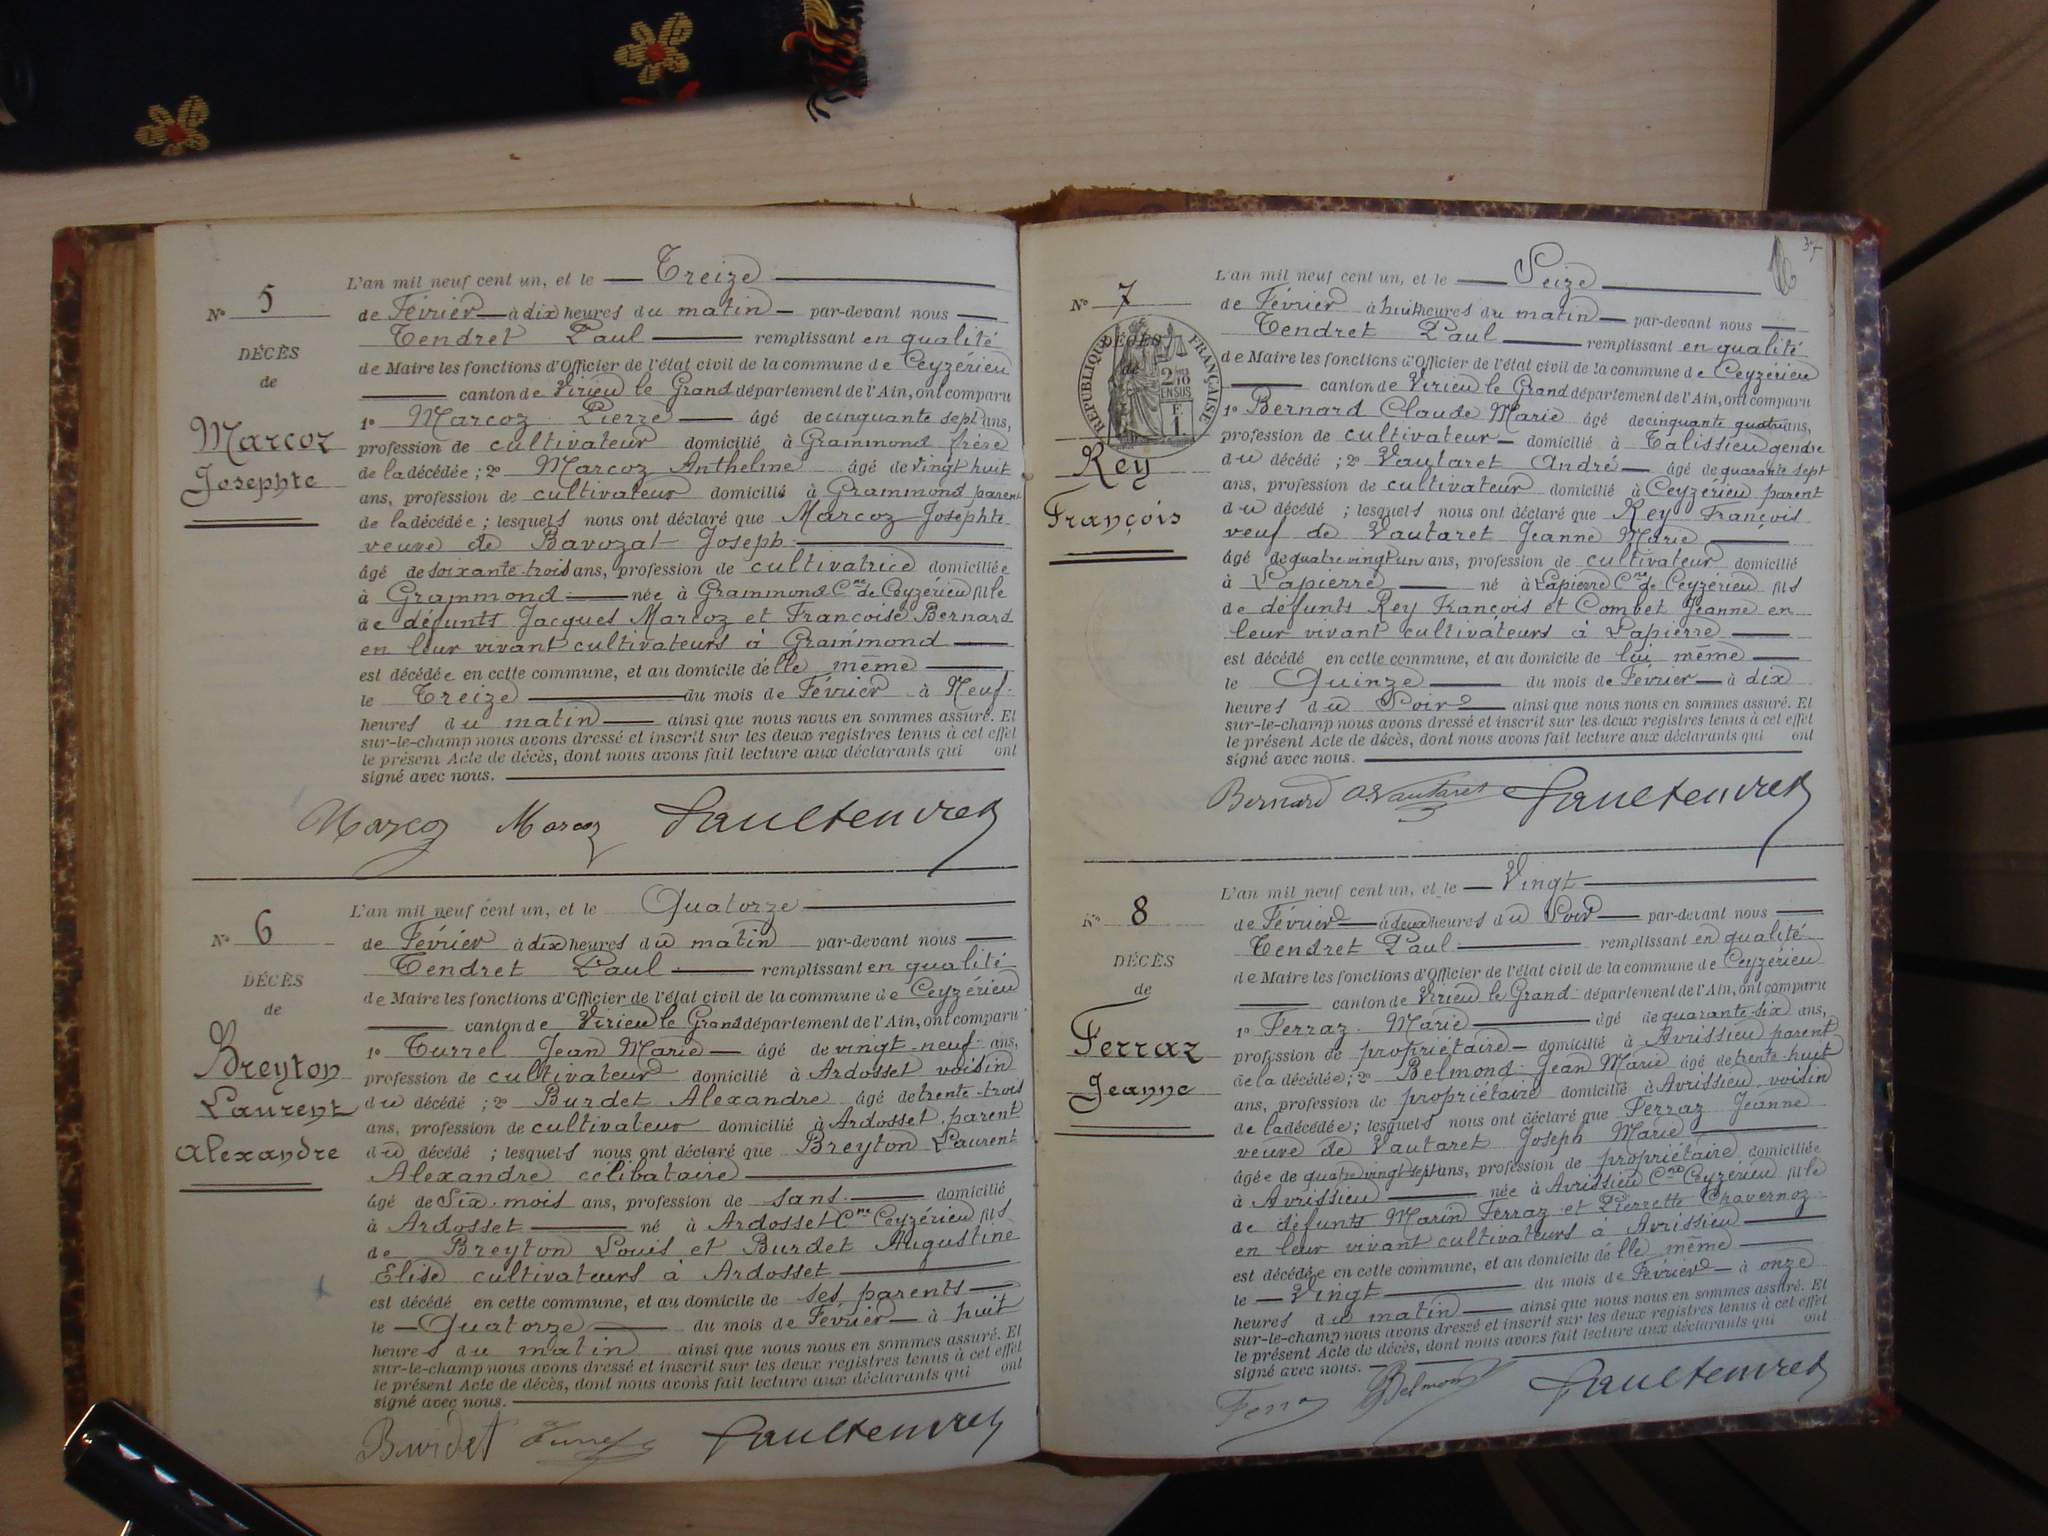 N° 5
DÉCÈS
de
Marcoz
Josephte
L'an mil neuf cent un, et le Treize
de Février à dix heures du matin par-devant nous
Tendret Paul remplissant en qualité
de Maire les fonctions d'Officier de l'état civil de la commune de Ceyzérieu
canton de Virieu le Grand département de l'Ain, ont comparu
1° Marcoz Pierre âgé de cinquante sept ans,
profession de cultivateur domicilié à Grammond frère
de la décédée ; 2° Marcoz Anthelme âgé de vingt huit
ans, profession de cultivateur domicilié à Grammond parent
de la décédée ; lesquels nous ont déclaré que Marcoz Josephte
veuve de Bavozat Joseph
âgé de soixante-trois ans, profession de cultivatrice domiciliée
à Grammond née à Grammond Cne de Ceyzérieu fille
de défunts Jacques Marcoz et Françoise Bernard
en leur vivant cultivateurs à Grammond
est décédée en cette commune, et au domicile d'elle même
le Treize du mois de Février à Neuf
heures du matin ainsi que nous nous en sommes assuré. Et
sur-le-champ nous avons dressé et inscrit sur les deux registres tenus à cet effet
le présent Acte de décès, dont nous avons fait lecture aux déclarants qui ont
signé avec nous.
Marcoz Marcoz Paul Tendret
N° 6
DÉCÈS
de
Breyton
Laurent
Alexandre
L'an mil neuf cent un, et le Quatorze
de Février à dix heures du matin par-devant nous
Tendret Paul remplissant en qualité
de Maire les fonctions d'Officier de l'état civil de la commune de Ceyzérieu
canton de Virieu le Grand département de l'Ain, ont comparu
1° Turrel Jean Marie âgé de vingt-neuf ans,
profession de cultivateur domicilié à Ardosset voisin
du décédé ; 2° Burdet Alexandre âgé de trente-trois
ans, profession de cultivateur domicilié à Ardosset parent
du décédé ; lesquels nous ont déclaré que Breyton Laurent
Alexandre célibataire
âgé de Six mois ans, profession de sans domicilié
à Ardosset né à Ardosset Cne Ceyzérieu fils
de Breyton Louis et Burdet Augustine
Elise cultivateurs à Ardosset
est décédé en cette commune, et au domicile de ses parents
le Quatorze du mois de Février à huit
heures du matin ainsi que nous nous en sommes assuré. Et
sur-le-champ nous avons dressé et inscrit sur les deux registres tenus à cet effet
le présent Acte de décès, dont nous avons fait lecture aux déclarants qui ont
signé avec nous.
Burdet Turrel Paul Tendret
N° 7
DÉCÈS
de
RÉPUBLIQUE FRANÇAISE
Rey
François
L'an mil neuf cent un, et le Seize
de Février à huit heures du matin par-devant nous
Tendret Paul remplissant en qualité
de Maire les fonctions d'Officier de l'état civil de la commune de Ceyzérieu
canton de Virieu le Grand département de l'Ain, ont comparu
1° Bernard Claude Marie âgé de cinquante quatre ans,
profession de cultivateur domicilié à Talissieu gendre
du décédé ; 2° Vautaret André âgé de quarante sept
ans, profession de cultivateur domicilié à Ceyzérieu parent
du décédé ; lesquels nous ont déclaré que Rey François
veuf de Vautaret Jeanne Marie
âgé de quatre vingt un ans, profession de cultivateur domicilié
à Lapierre né à Lapierre Cne de Ceyzérieu fils
de défunts Rey François et Combet Jeanne en
leur vivant cultivateurs à Lapierre
est décédé en cette commune, et au domicile de lui même
le Quinze du mois de Février à dix
heures du Soir ainsi que nous nous en sommes assuré. Et
sur-le-champ nous avons dressé et inscrit sur les deux registres tenus à cet effet
le présent Acte de décès, dont nous avons fait lecture aux déclarants qui ont
signé avec nous.
Bernard A. Vautaret Paul Tendret
N° 8
DÉCÈS
de
Ferraz
Jeanne
L'an mil neuf cent un, et le Vingt
de Février à deux heures du Soir par-devant nous
Tendret Paul remplissant en qualité
de Maire les fonctions d'Officier de l'état civil de la commune de Ceyzérieu
canton de Virieu le Grand département de l'Ain, ont comparu
1° Ferraz Marie âgé de quarante-six ans,
profession de propriétaire domicilié à Avrissieu parent
de la décédée ; 2° Belmond Jean Marie âgé de trente-huit
ans, profession de propriétaire domicilié à Avrissieu voisin
de la décédée ; lesquels nous ont déclaré que Ferraz Jeanne
veuve de Vautaret Joseph Marie
âgée de quatre vingt sept ans, profession de propriétaire domiciliée
à Avrissieu née à Avrissieu Cne Ceyzérieu fille
de défunts Marin Ferraz et Pierrette Chavernoz
en leur vivant cultivateurs à Avrissieu
est décédée en cette commune, et au domicile d'elle même
le Vingt du mois de Février à onze
heures du matin ainsi que nous nous en sommes assuré. Et
sur-le-champ nous avons dressé et inscrit sur les deux registres tenus à cet effet
le présent Acte de décès, dont nous avons fait lecture aux déclarants qui ont
signé avec nous.
Belmond Paul Tendret